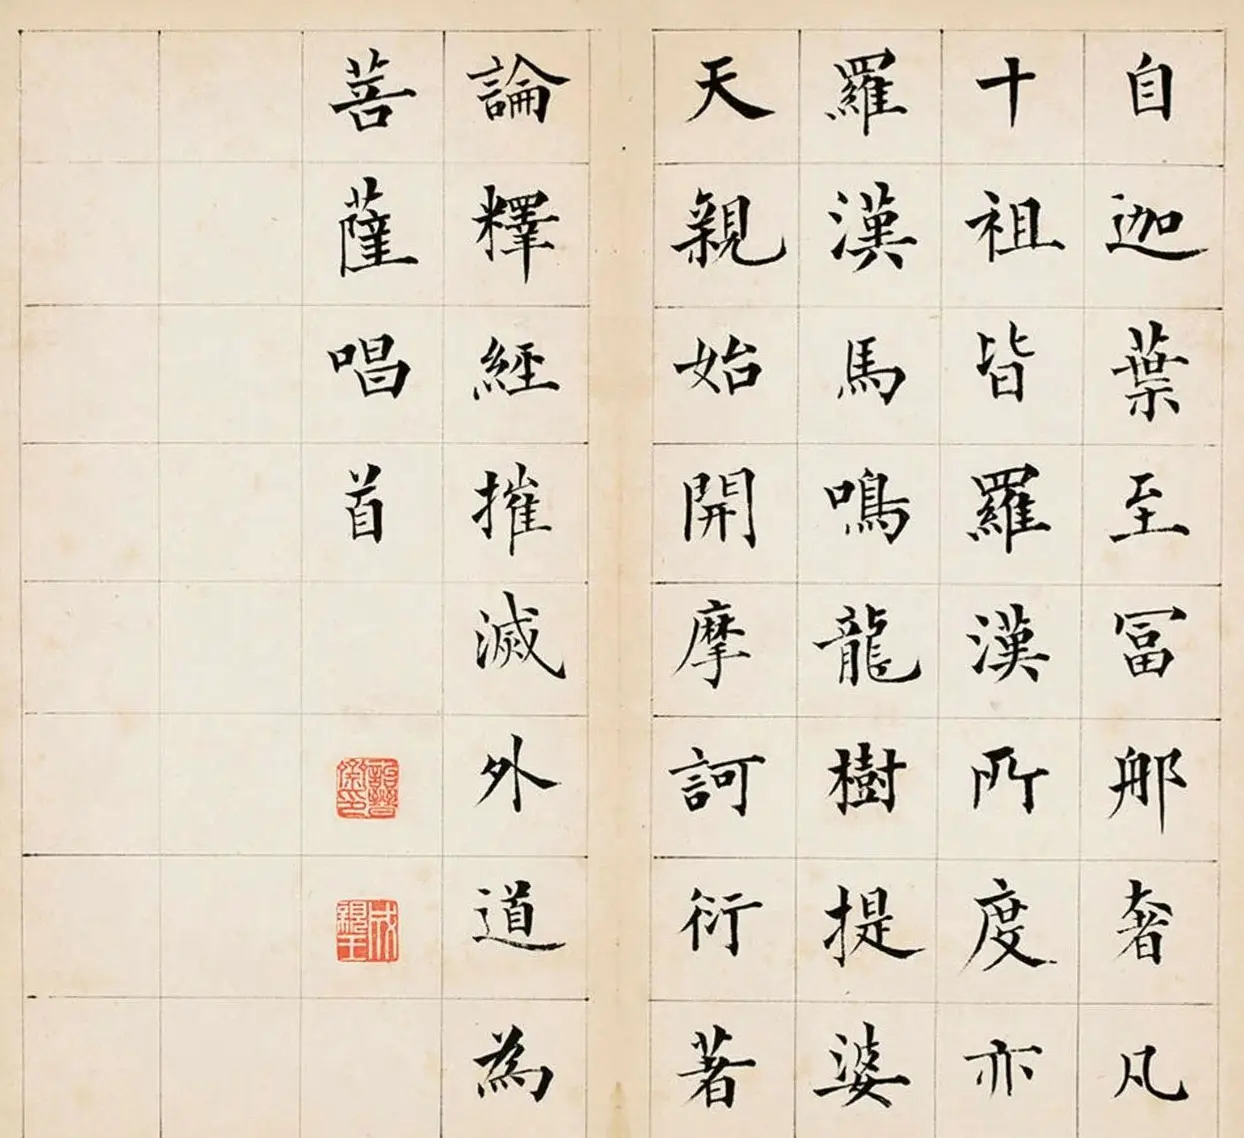 自迦葉至冨那奢凡
十祖皆羅漢所度亦
羅漢馬鳴龍樹提婆
天親始開摩訶衍著
論釋經摧滅外道為
菩薩唱首
詒晉齋印
成親王